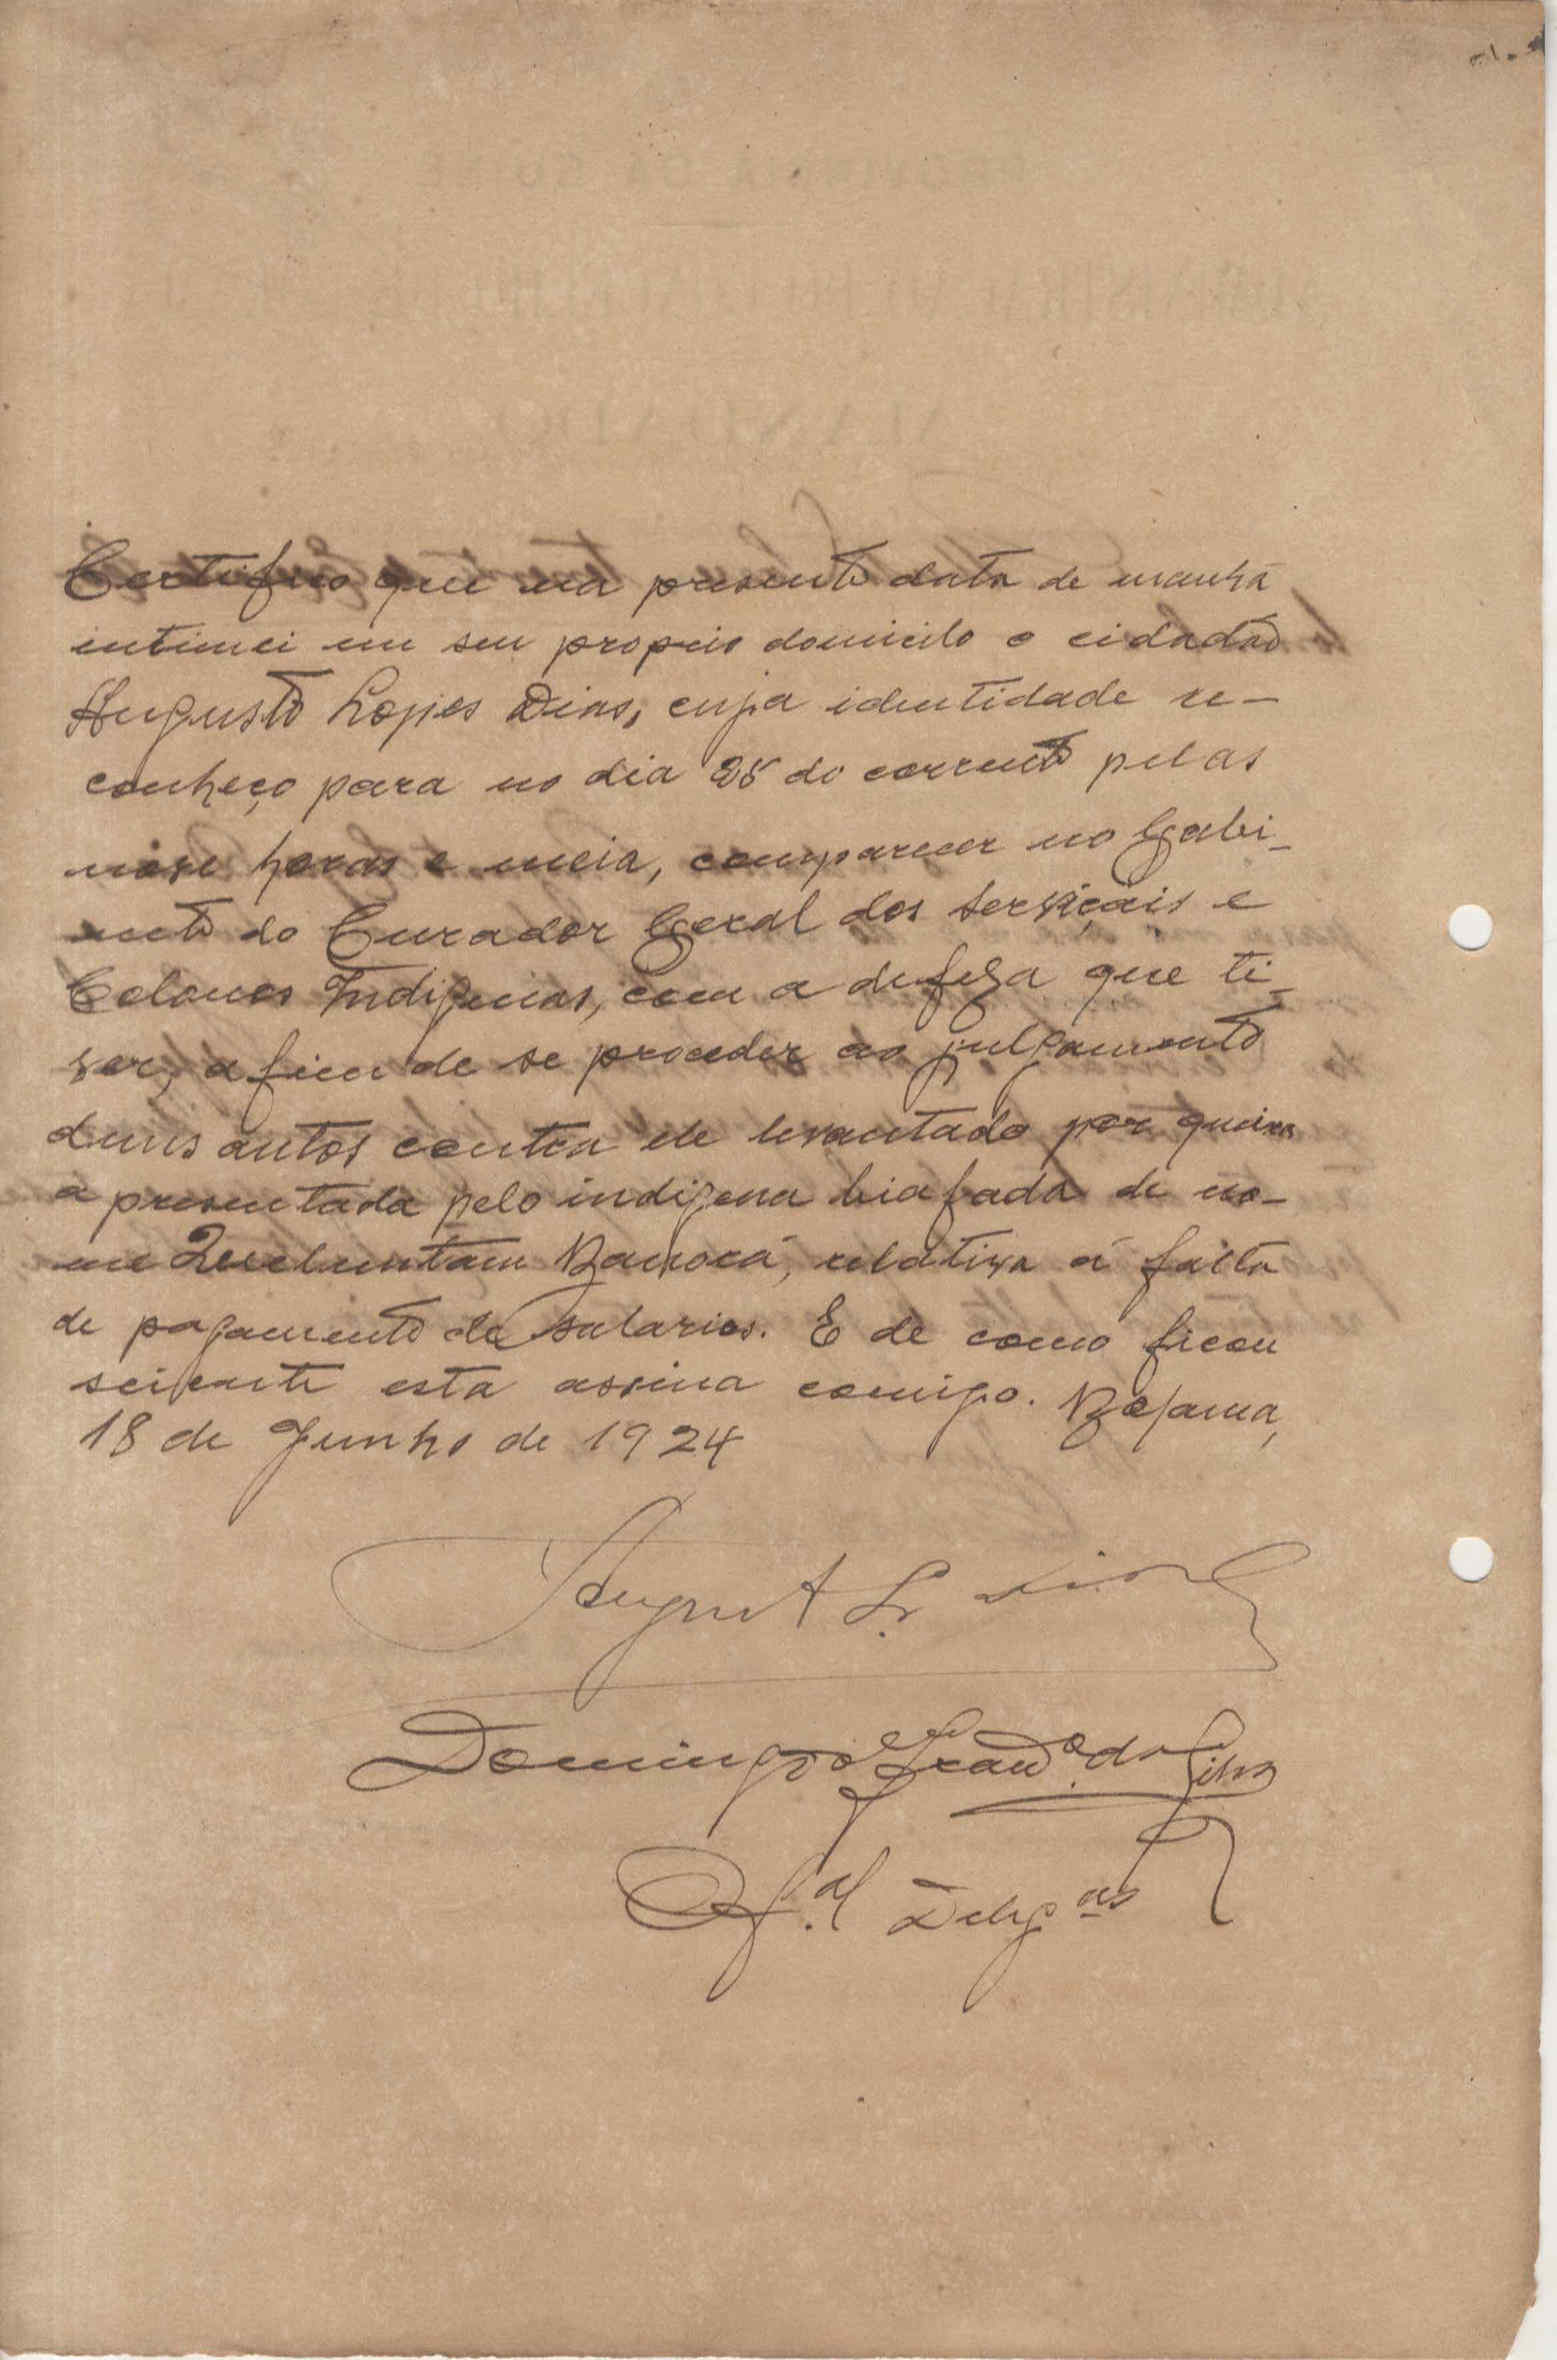 Certifico que na presente data de manhã
intimei em seu proprio domicilo o cidadão
Augusto Lopes Dias, cuja identidade re-
conheço para no dia 25 do corrente pelas
nove horas e meia, comparecer no Gabi-
nete do Curador Geral dos Serviçais e
Colonos Indigenas, com a defeza que ti-
ver, a fim de se proceder ao julgamento
duns autos contra ele levantado por queixa
apresentada pelo indigena biafada de no-
me Banorá, relativa á falta
de pagamento de salarios. E de como ficou
sciente esta assina comigo. Bolama,
18 de Junho de 1924
August L. Dias
Domingos da Silva
Of.al Delig.as